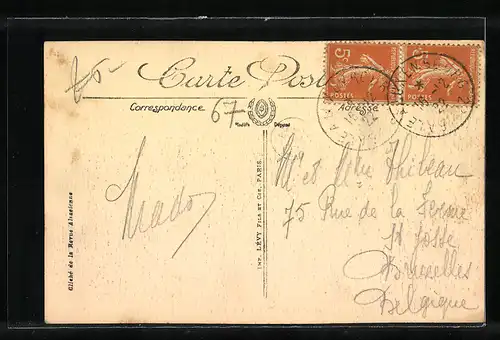 Carte Post
Correspondance
67
Modèle Déposé
Adresse
5c
POSTES
POSTES
Mado
Mr et Mme Thibeau
75 Rue de la Ferme
St Josse
Bruxelles
Belgique
Cliché de la Revue Alsacienne
IMP. LÉVY FILS ET CIE, PARIS.